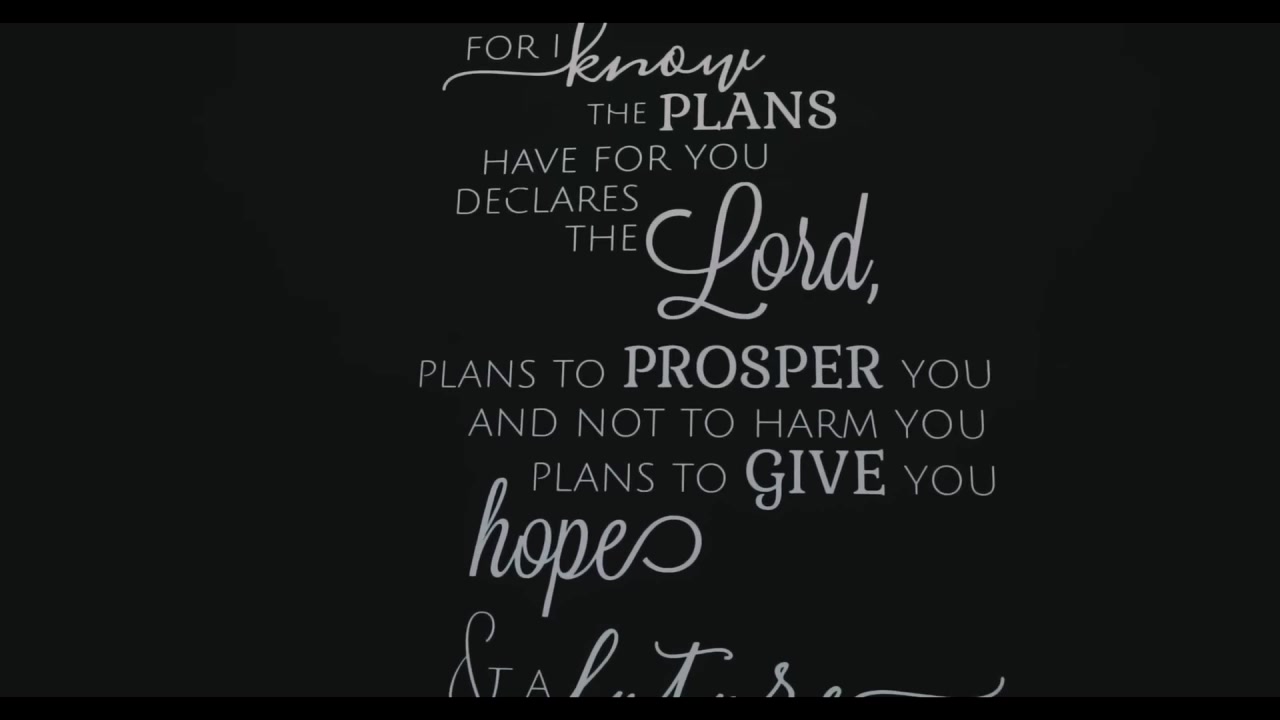 FOR I know
THE PLANS
HAVE FOR YOU
DECLARES
THE Lord,
PLANS TO PROSPER YOU
AND NOT TO HARM YOU
PLANS TO GIVE YOU
hope
& A future